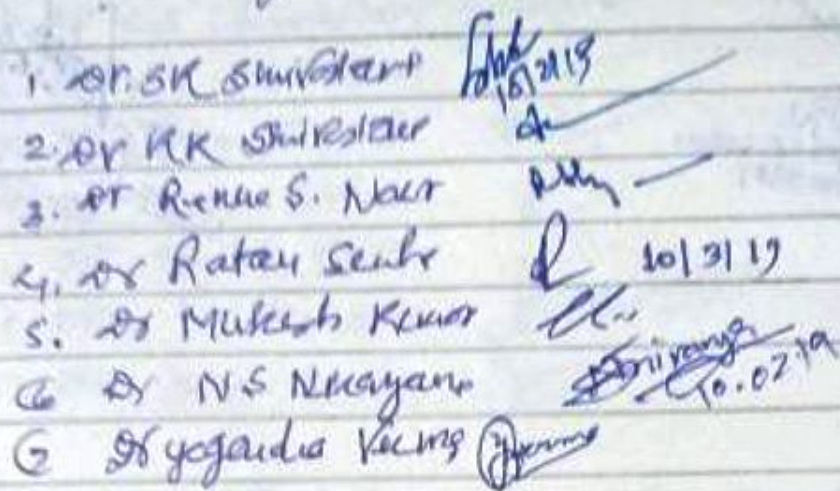 1. Dr. SK Shrivastava 10/2/19
2. Dr KK Shrivastav
3. Dr Renue S. Nair
4. Dr Ratan Senhr 10/3/19
5. Dr Mukesh Kumar
6 Dr NS Niranjan 10.02.19
7 Dr yogendra Verma